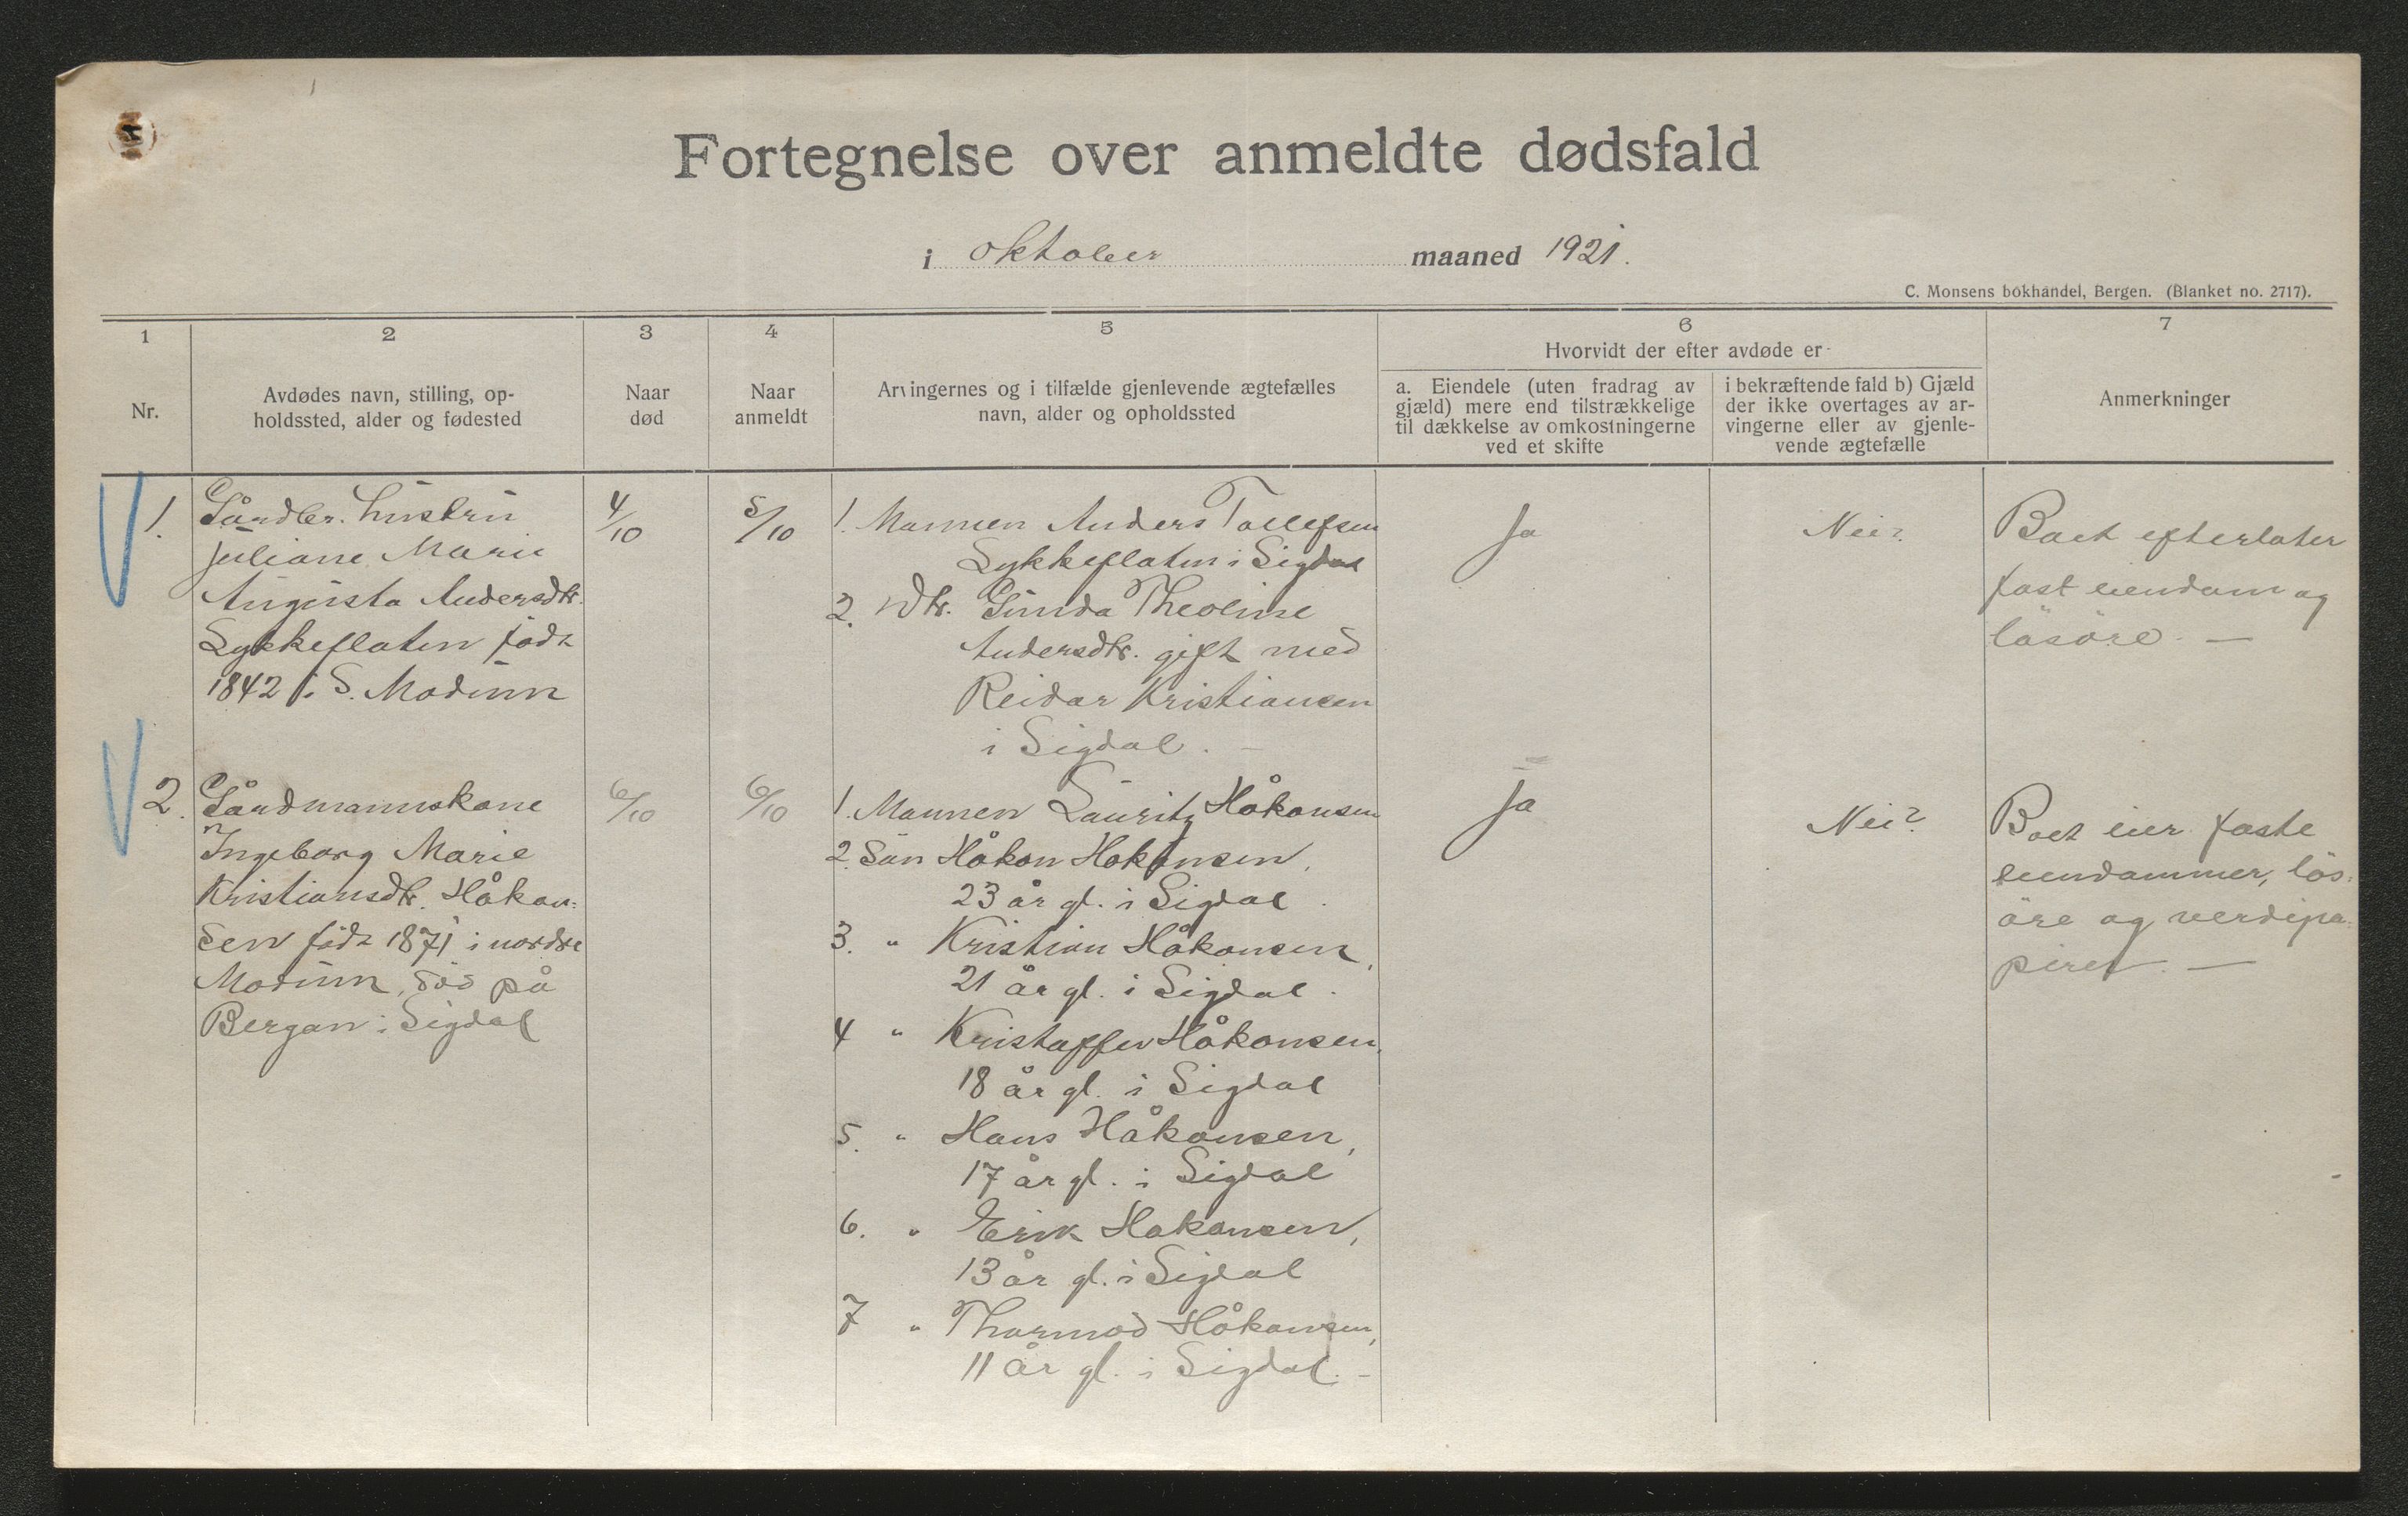 Fortegnelse over anmeldte dødsfald
i oktober maaned 1921.
C. Monsens bokhandel, Bergen. (Blanket no. 2717).
1
Nr.
2
Avdødes navn, stilling, op-
holdssted, alder og fødested
3
Naar
død
4
Naar
anmeldt
5
Arvingernes og i tilfælde gjenlevende ægtefælles
navn, alder og opholdssted
6
Hvorvidt der efter avdøde er
a. Eiendele (uten fradrag av
gjæld) mere end tilstrækkelige
til dækkelse av omkostningerne
ved et skifte
i bekræftende fald b) Gjæld
der ikke overtages av ar-
vingerne eller av gjenle-
vende ægtefælle
7
Anmerkninger
1.
Gårdbr. hustru
Juliane Marie
Augusta Andersdtr.
Lykkeflaten född
1842 i S. Modum
4/10
5/10
1. Mannen Anders Tollefsen
Lykkeflaten i Sigdal
2. Dtr. Gunda Theoline
Andersdtr. gift med
Reidar Kristiansen
i Sigdal. –
Ja
Nei?
Boet efterlater
fast eiendom og
lösöre. —
2.
Gårdmannskone
Ingeborg Marie
Kristiansdtr. Håkon=
sen född 1871 i nordre
Modum, död på
Bergan i Sigdal
6/10
6/10
1. Mannen Lauritz Håkonsen
2. Sön Håkon Hokonsen,
23 år gl. i Sigdal.
3. " Kristian Håkonsen,
21 år gl. i Sigdal.
4 " Kristoffer Håkonsen,
18 år gl. i Sigdal
5. " Hans Håkonsen,
17 år gl. i Sigdal
6. " Erik Hakonsen,
13 år gl. i Sigdal
7 " Thormod Håkonsen,
11 år gl. i Sigdal. –
Ja
Nei?
Boet eier faste
eiendommer, lös=
öre og verdipa=
pirer. —